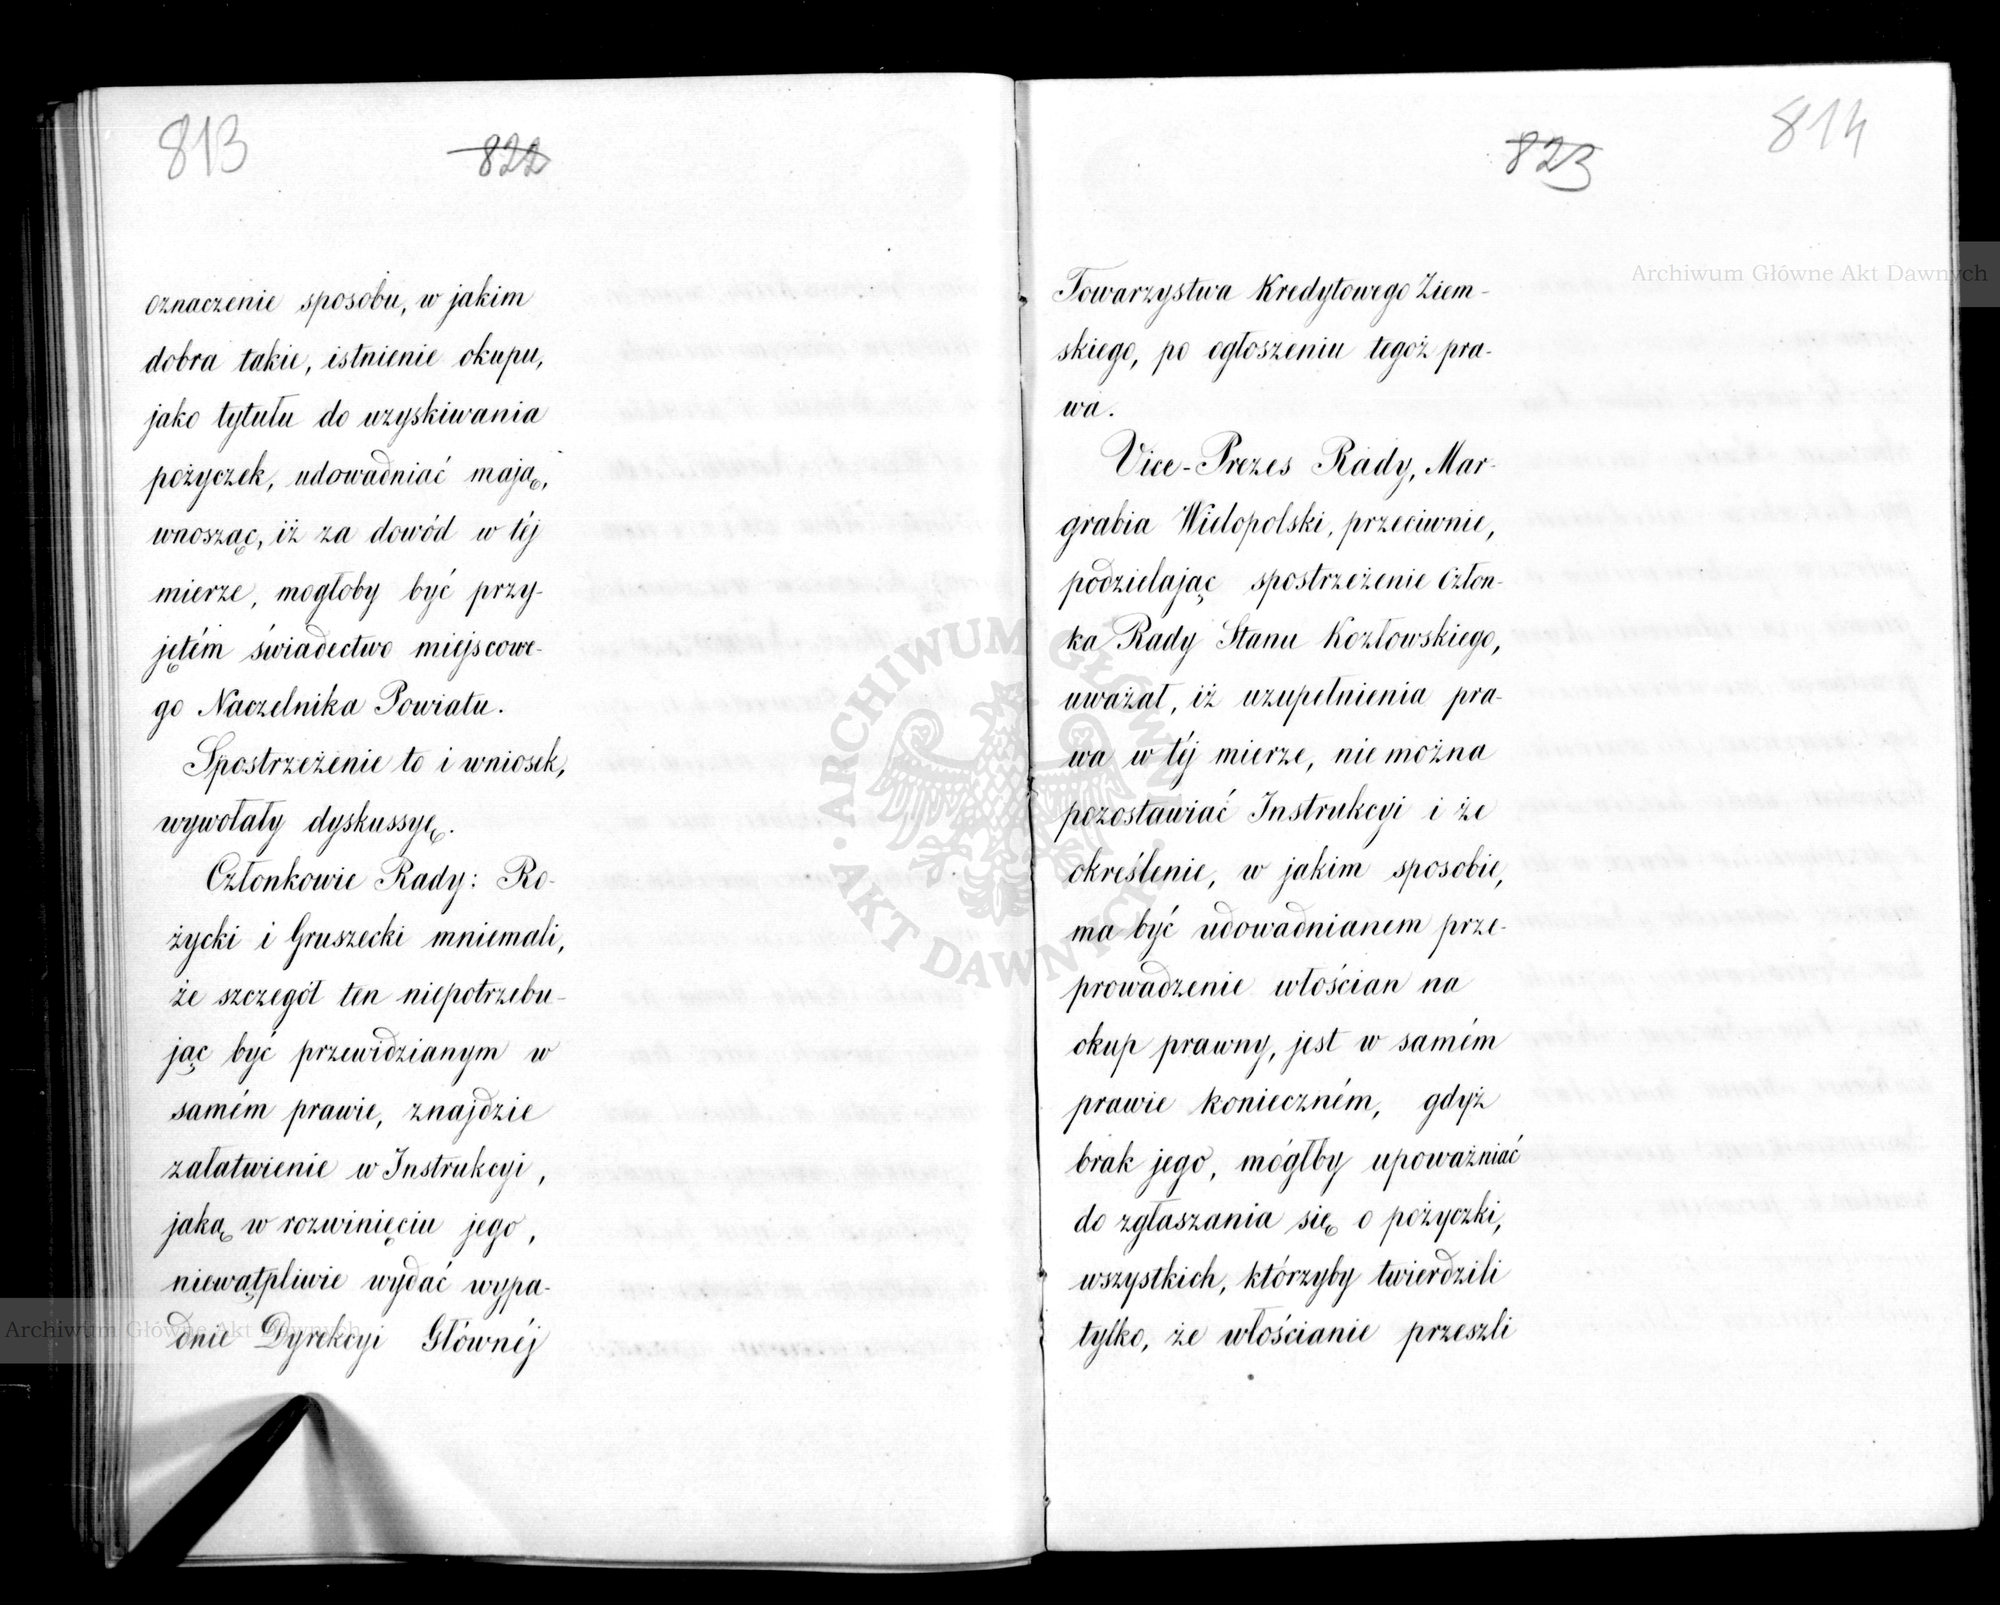 813
822
oznaczenie sposobu, w jakim
dobra takie, istnienie okupu,
jako tytułu do uzyskiwania
pożyczek, udowadniać mają,
wnosząc, iż za dowód w téj
mierze, mogłoby być przy-
jętém świadectwo miejscowe-
go Naczelnika Powiatu.
Spostrzeżenie to i wniosek,
wywołały dyskussyę.
Członkowie Rady: Ro-
życki i Gruszecki mniemali,
że szczegół ten niepotrzebu-
jąc być przewidzianym w
samém prawie, znajdzie
załatwienie w Instrukcyi,
jaką w rozwinięciu jego,
niewątpliwie wydać wypa-
dnie Dyrekcyi Głównéj
814
823
Towarzystwa Kredytowego Ziem-
skiego, po ogłoszeniu tegoż pra-
wa.
Vice-Prezes Rady, Mar-
grabia Wielopolski, przeciwnie,
podzielając spostrzeżenie Człon-
ka Rady Stanu Kozłowskiego,
uważał, iż uzupełnienia pra-
wa w téj mierze, nie można
pozostawiać Instrukcyi i że
określenie, w jakim sposobie,
ma być udowadnianem prze-
prowadzenie włościan na
okup prawny, jest w samém
prawie konieczném, gdyż
brak jego, mógłby upoważniać
do zgłaszania się o pożyczki,
wszystkich, którzyby twierdzili
tylko, że włościanie przeszli
Archiwum Główne Akt Dawnych
ARCHIWUM GŁÓWNE · AKT DAWNYCH ·
Archiwum Główne Akt Dawnych